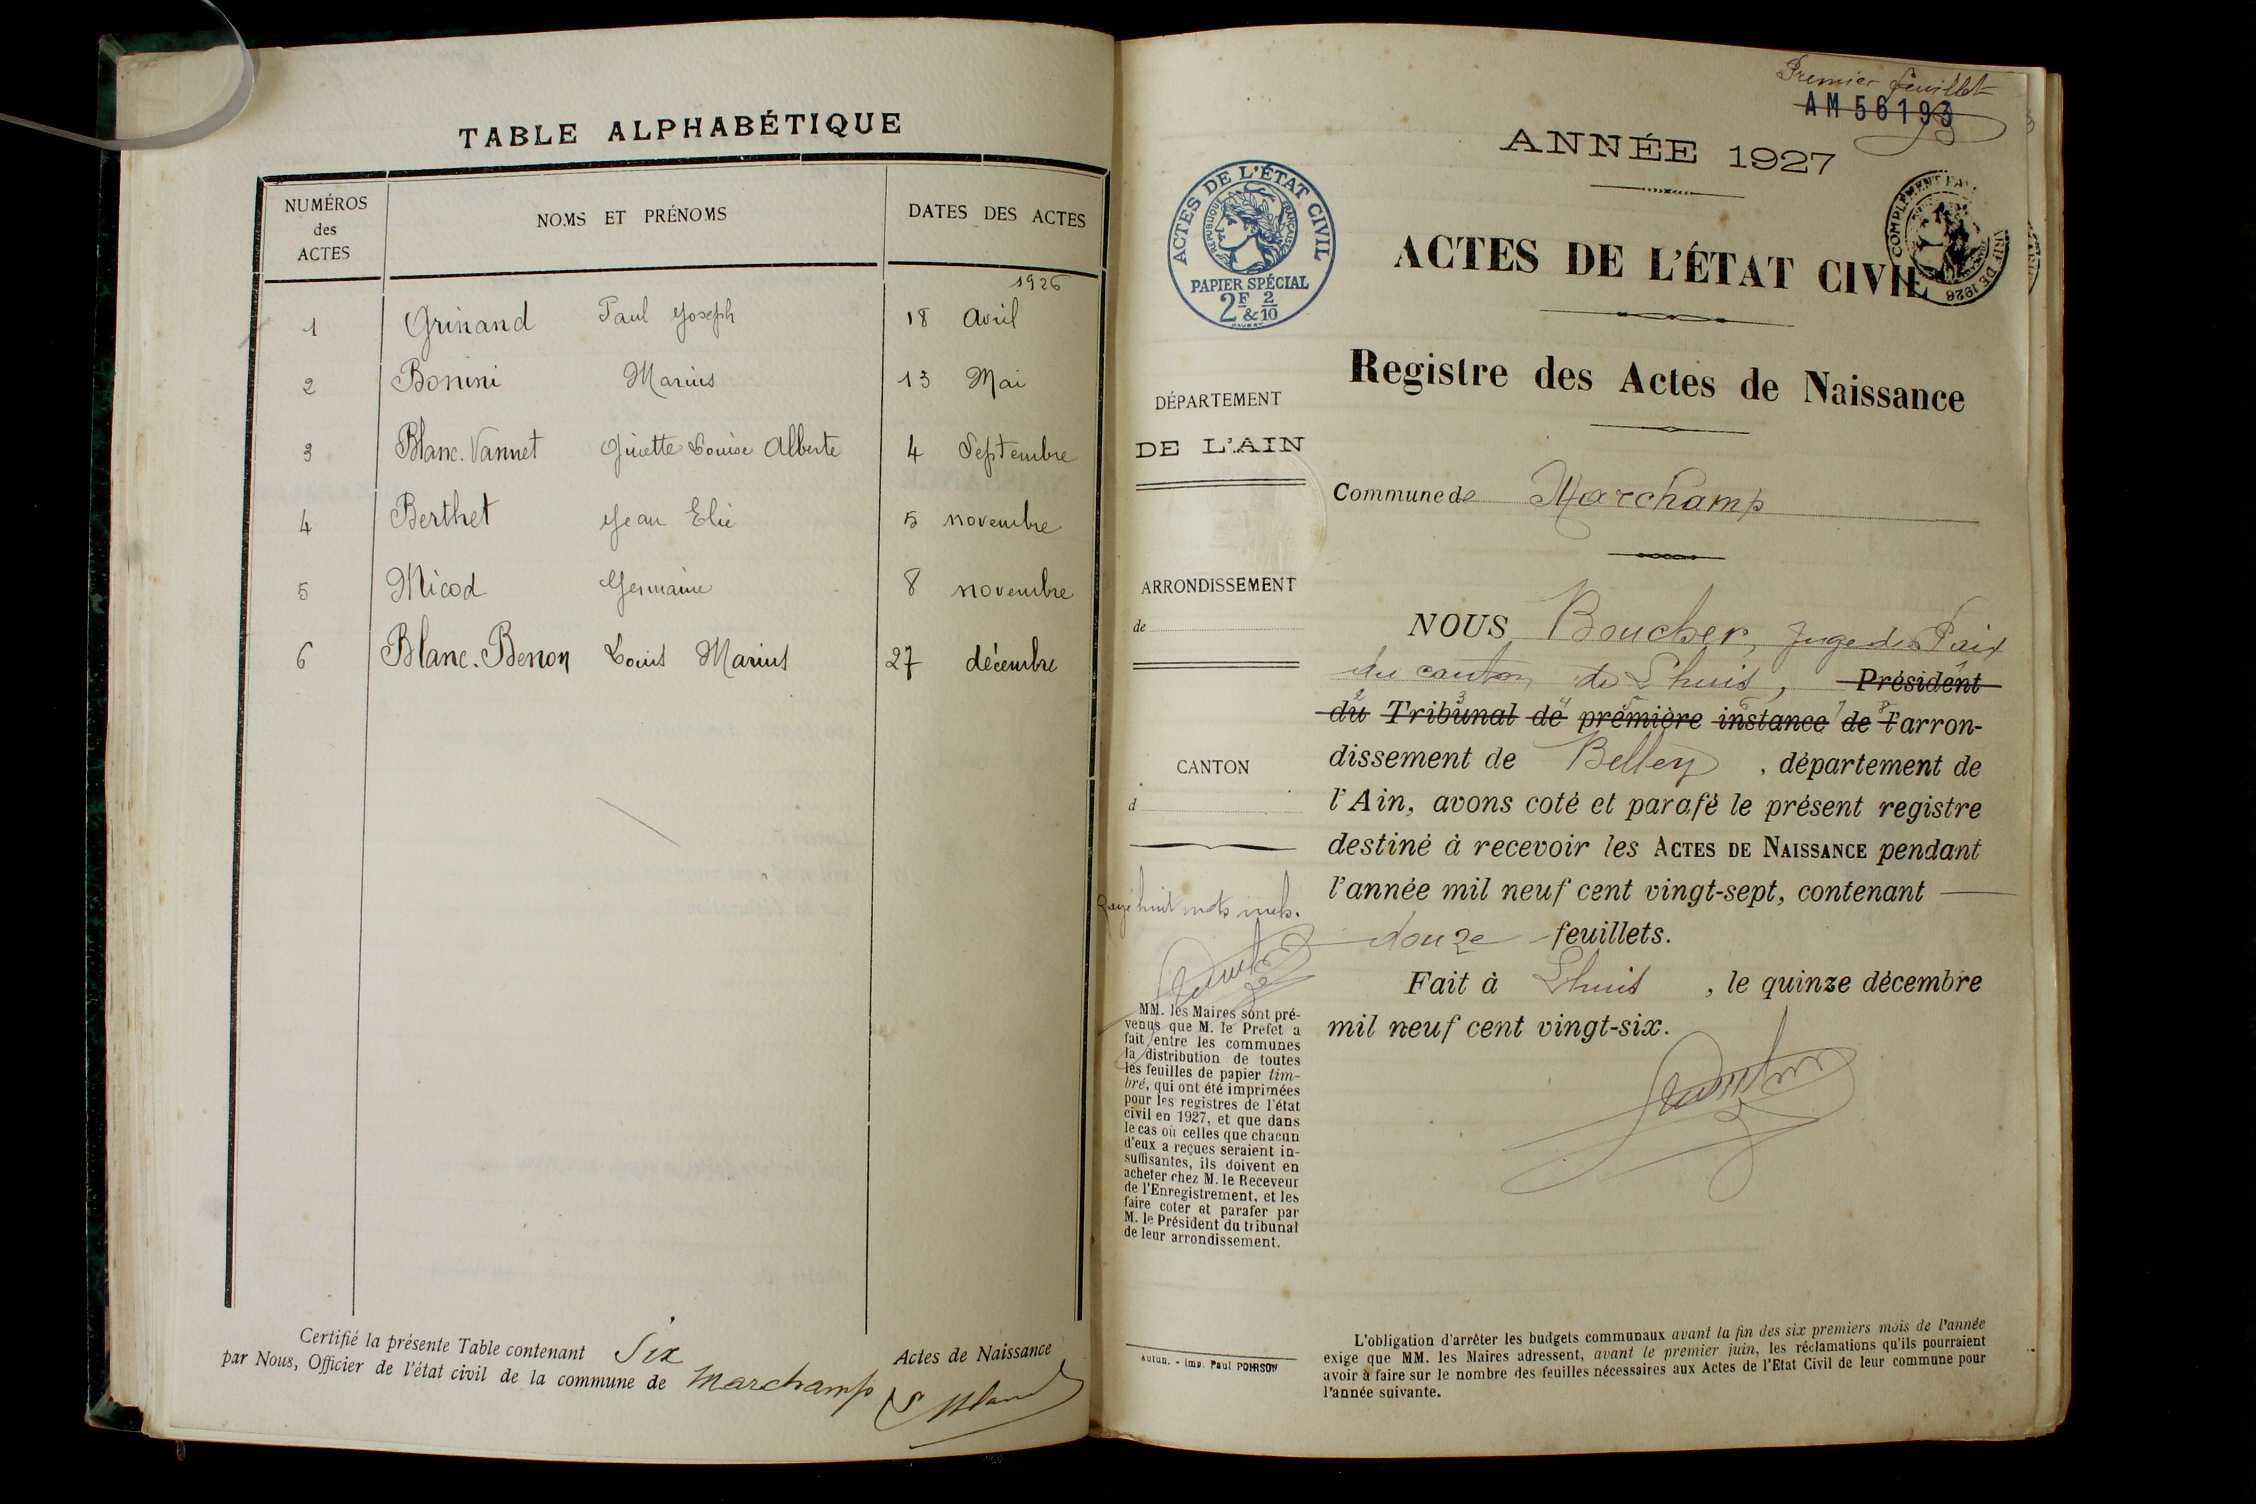 TABLE ALPHABÉTIQUE
NUMÉROS
des
ACTES
NOMS ET PRÉNOMS
DATES DES ACTES
1926
1 Grinand Paul Joseph 18 Avril
2 Bonini Marius 13 Mai
3 Blanc-Vannet Ginette Louise Alberte 4 Septembre
4 Berthet Jean Elie 5 novembre
5 Micod Germaine 8 novembre
6 Blanc-Benon Louis Marius 27 décembre
Certifié la présente Table contenant Six Actes de Naissance
par Nous, Officier de l'état civil de la commune de Marchamp
Premier feuillet
AM 56193
ANNÉE 1927
ACTES DE L'ÉTAT CIVIL
RÉPUBLIQUE FRANÇAISE
PAPIER SPÉCIAL
2F & 2/10
ACTES DE L'ÉTAT CIVIL
Registre des Actes de Naissance
DÉPARTEMENT
DE L'AIN
Commune de Marchamp
ARRONDISSEMENT
de
CANTON
d
NOUS Boucher, Juge de Paix
du canton de Lhuis, Président
du Tribunal de première instance de l'arron-
dissement de Belley, département de
l'Ain, avons coté et parafé le présent registre
destiné à recevoir les ACTES DE NAISSANCE pendant
l'année mil neuf cent vingt-sept, contenant
douze feuillets.
Fait à Lhuis, le quinze décembre
mil neuf cent vingt-six.
Rayé huit mots nuls.
MM. les Maires sont pré-
venus que M. le Préfet a
fait entre les communes
la distribution de toutes
les feuilles de papier tim-
bré, qui ont été imprimées
pour les registres de l'état
civil en 1927, et que dans
le cas où celles que chacun
d'eux a reçues seraient in-
suffisantes, ils doivent en
acheter chez M. le Receveur
de l'Enregistrement, et les
faire coter et parafer par
M. le Président du tribunal
de leur arrondissement.
Autun. - Imp. Paul POIRSON
L'obligation d'arrêter les budgets communaux avant la fin des six premiers mois de l'année
exige que MM. les Maires adressent, avant le premier juin, les réclamations qu'ils pourraient
avoir à faire sur le nombre des feuilles nécessaires aux Actes de l'Etat Civil de leur commune pour
l'année suivante.